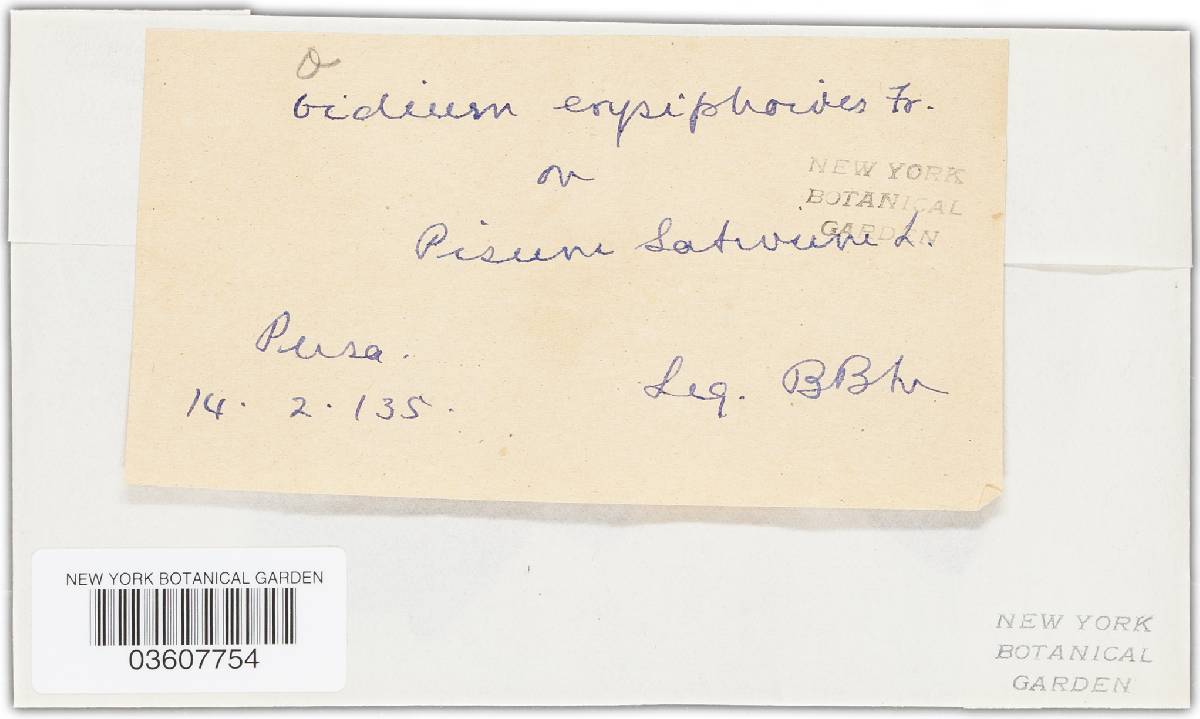 O
Oidium erysiphoides Fr.
on
Pisum Sativum L.
NEW YORK
BOTANICAL
GARDEN
Pusa.
14. 2. 135.
Leg.
NEW YORK BOTANICAL GARDEN
03607754
NEW YORK
BOTANICAL
GARDEN